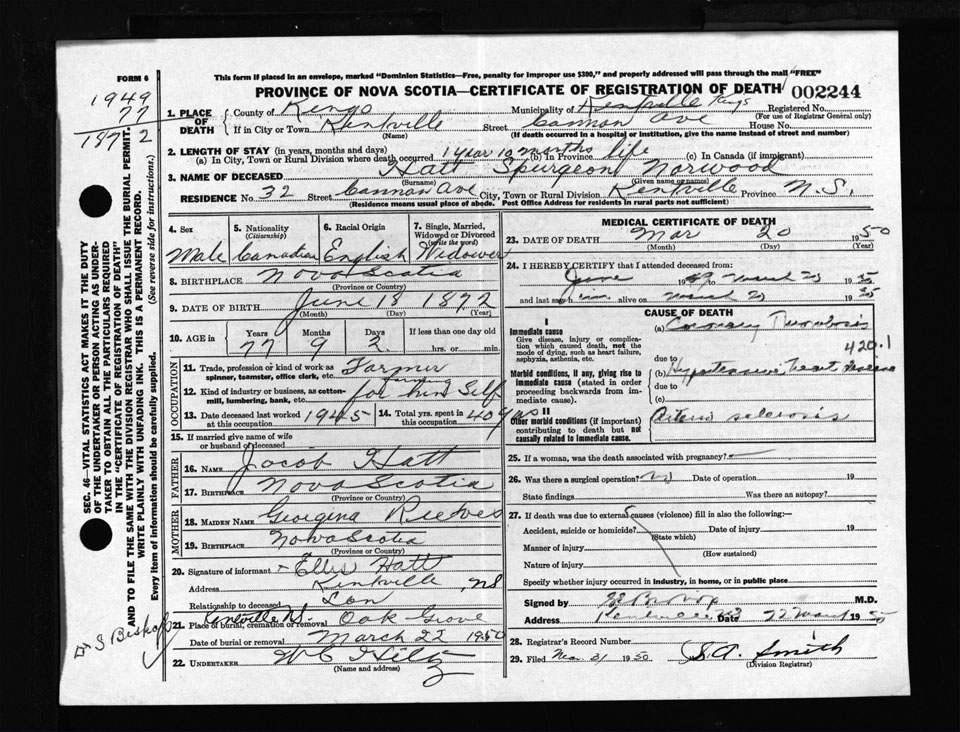 FORM 6
This form if placed in an envelope, marked "Dominion Statistics—Free, penalty for improper use $300," and properly addressed will pass through the mail "FREE"
PROVINCE OF NOVA SCOTIA—CERTIFICATE OF REGISTRATION OF DEATH
002244
1949
77
1872 2
1. PLACE OF DEATH
County of Kings Municipality of Kentville Kings Registered No.
(For use of Registrar General only)
If in City or Town Kentville Street Cannon Ave House No.
(Name) (If death occurred in a hospital or institution, give the name instead of street and number)
2. LENGTH OF STAY (in years, months and days)
(a) In City, Town or Rural Division where death occurred 1 year 10 months (b) In Province life (c) In Canada (if immigrant)
3. NAME OF DECEASED Hatt Spurgeon Norwood
(Surname) (Given name or names)
RESIDENCE No. 32 Street Cannon Ave City, Town or Rural Division Kentville Province N.S.
(Residence means usual place of abode. Post Office Address for residents in rural parts not sufficient)
4. Sex
Male
5. Nationality
(Citizenship)
Canadian
6. Racial Origin
English
7. Single, Married, Widowed or Divorced
(write the word)
Widower
8. BIRTHPLACE Nova Scotia
(Province or Country)
9. DATE OF BIRTH June 18 1872
(Month) (Day) (Year)
10. AGE in Years Months Days If less than one day old
77 9 2 hrs. or min.
OCCUPATION
11. Trade, profession or kind of work as spinner, teamster, office clerk, etc. Farmer
12. Kind of industry or business, as cotton-mill, lumbering, bank, etc. farming for him Self
13. Date deceased last worked at this occupation 1945
14. Total yrs. spent in this occupation 40 yrs
15. If married give name of wife or husband of deceased
FATHER
16. NAME Jacob Hatt
17. BIRTHPLACE Nova Scotia
(Province or Country)
MOTHER
18. MAIDEN NAME Georgina Reeves
19. BIRTHPLACE Nova Scotia
(Province or Country)
20. Signature of informant Ellis Hatt
Address Kentville, NS
Relationship to deceased Son
21. Place of burial, cremation or removal Kentville NS. Oak Grove
Date of burial or removal March 22 1950
22. UNDERTAKER W C Hiltz
(Name and address)
MEDICAL CERTIFICATE OF DEATH
23. DATE OF DEATH Mar 20 1950
(Month) (Day) (Year)
24. I HEREBY CERTIFY that I attended deceased from:
June 1949 to March 20 19
and last saw him alive on March 20 19
CAUSE OF DEATH
I
Immediate cause
Give disease, injury or complication which caused death, not the mode of dying, such as heart failure, asphyxia, asthenia, etc.
(a) Coronary Thrombosis
420.1
due to
Morbid conditions, if any, giving rise to immediate cause (stated in order proceeding backwards from immediate cause).
(b) Hypertensive heart disease
due to
(c)
II
Other morbid conditions (if important) contributing to death but not causally related to immediate cause.
Arterio sclerosis
25. If a woman, was the death associated with pregnancy?
26. Was there a surgical operation? no Date of operation 19
State findings Was there an autopsy?
27. If death was due to external causes (violence) fill in also the following:—
Accident, suicide or homicide? Date of injury 19
(State which)
Manner of injury
(How sustained)
Nature of injury
Specify whether injury occurred in industry, in home, or in public place
Signed by M.D.
Address Date 22 March 1950
28. Registrar's Record Number
29. Filed Mar. 31 1950 S.A. Smith
(Division Registrar)
SEC. 46—VITAL STATISTICS ACT MAKES IT THE DUTY OF THE UNDERTAKER OR PERSON ACTING AS UNDERTAKER TO OBTAIN ALL THE PARTICULARS REQUIRED IN THE "CERTIFICATE OF REGISTRATION OF DEATH" AND TO FILE THE SAME WITH THE DIVISION REGISTRAR WHO SHALL ISSUE THE BURIAL PERMIT.
WRITE PLAINLY WITH UNFADING INK. THIS IS A PERMANENT RECORD.
Every item of information should be carefully supplied. (See reverse side for instructions.)
S Bishop